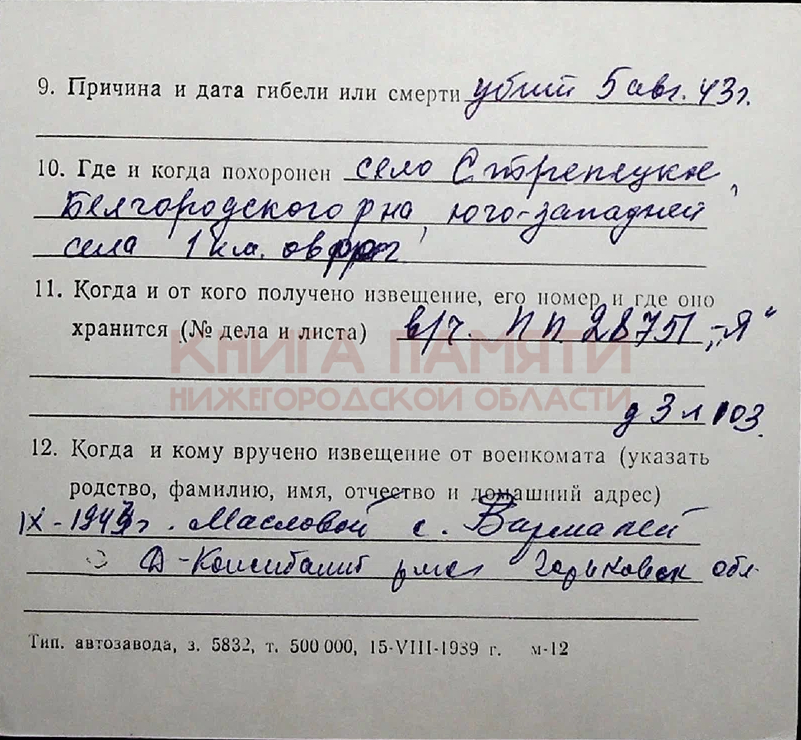 9. Причина и дата гибели или смерти убит 5 авг. 43 г.
10. Где и когда похоронен село Стрелецкое,
Белгородского р на, юго-западней
села 1 км. овраг
11. Когда и от кого получено извещение, его номер и где оно
хранится (№ дела и листа) в/ч. ПП 28751 „Я“
КНИГА ПАМЯТИ
НИЖЕГОРОДСКОЙ ОБЛАСТИ
д 3 л 103.
12. Когда и кому вручено извещение от военкомата (указать
родство, фамилию, имя, отчество и домашний адрес)
IX-1943 г. Масловой с. Вармалей
Д-Конст обл.
Тип. автозавода, з. 5832, т. 500 000, 15-VIII-1989 г. м-12